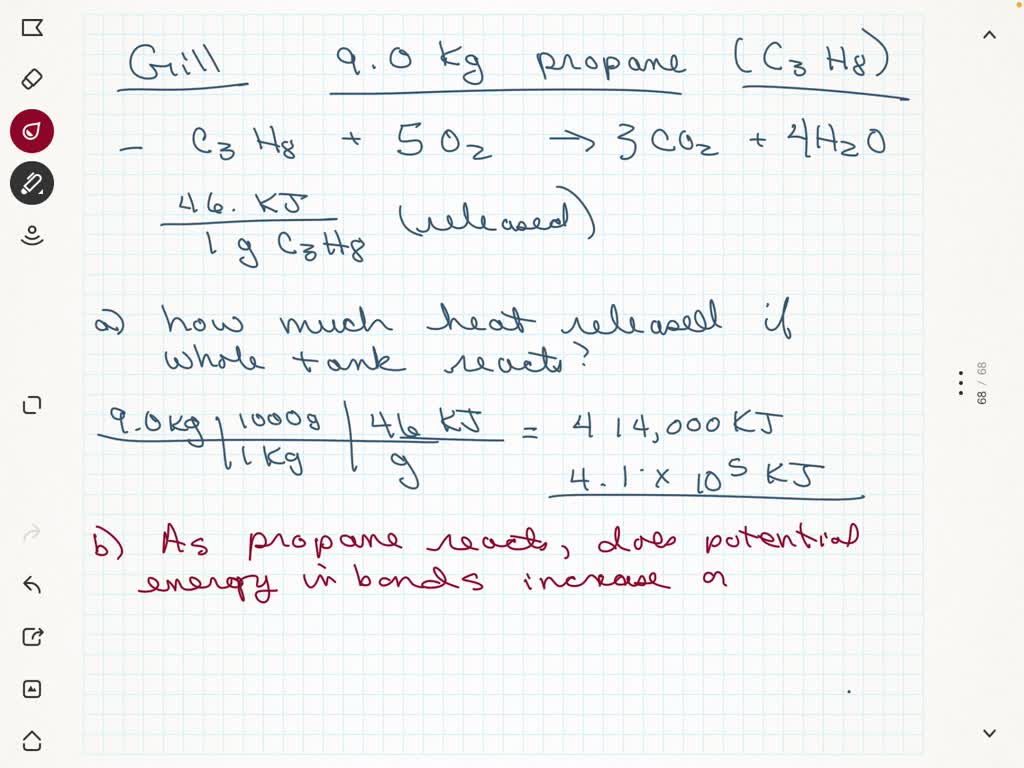 Grill 9.0 Kg propane (C3 H8)
- C3 H8 + 5 O2 → 3 CO2 + 4H2O
46. KJ (released)
1 g C3H8
a) how much heat released if
whole tank reacts?
9.0kg | 1000g | 46 KJ = 414,000 KJ
1 Kg | g 4.1 x 10^5 KJ
b) As propane reacts, does potential
energy in bonds increase or
68 / 68